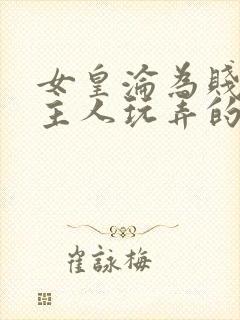 女皇淪為賤
主人玩弄的
崔詠梅